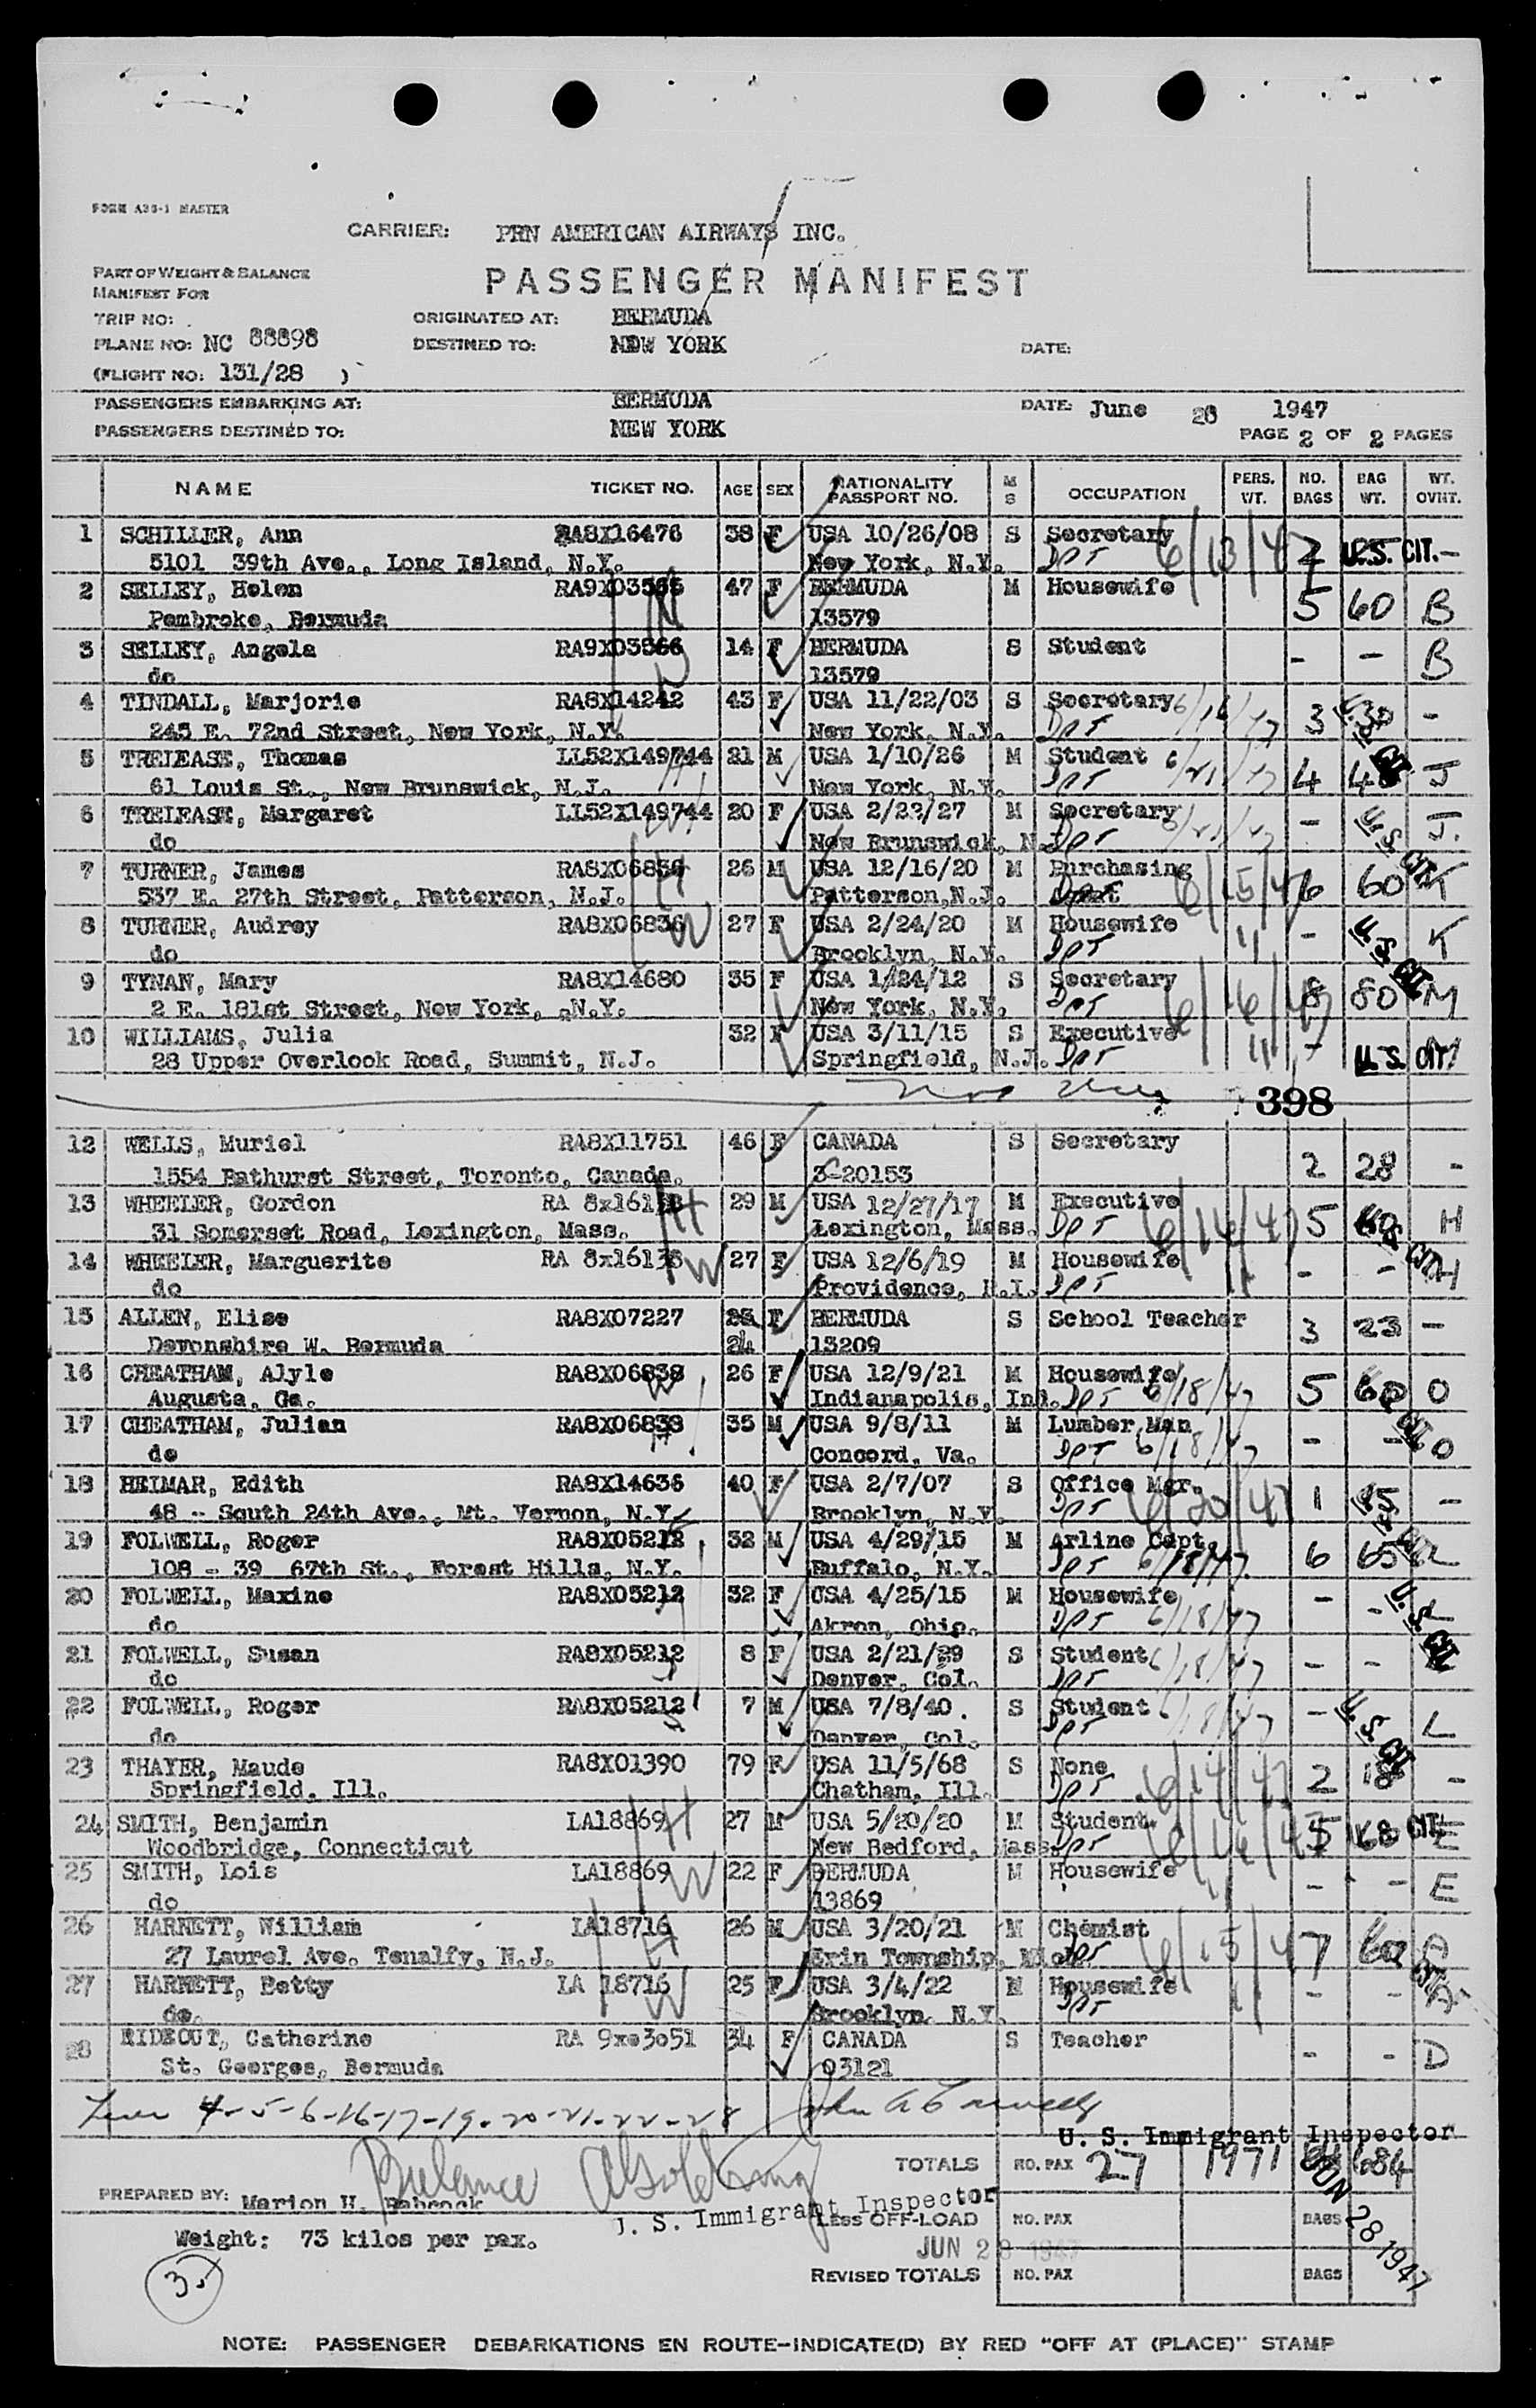 FORM A36-1 MASTER
CARRIER: PRN AMERICAN AIRWAYS INC.
PART OF WEIGHT & BALANCE
MANIFEST FOR
PASSENGER MANIFEST
TRIP NO: ORIGINATED AT: BERMUDA
PLANE NO: NC 88898 DESTINED TO: NEW YORK DATE:
(FLIGHT NO: 131/28 )
PASSENGERS EMBARKING AT: BERMUDA DATE: June 28 1947
PASSENGERS DESTINED TO: NEW YORK PAGE 2 OF 2 PAGES
NAME TICKET NO. AGE SEX NATIONALITY PASSPORT NO. M S OCCUPATION PERS. WT. NO. BAGS BAG WT. WT. OVHT.
1 SCHILLER, Ann RA8X16476 38 F USA 10/26/08 S Secretary 6/13/47 2 U.S. CIT. -
5101 39th Ave., Long Island, N.Y. New York, N.Y. DPT
2 SELLEY, Helen RA9X03565 47 F BERMUDA M Housewife 5 60 B
Pembroke, Bermuda 13579
3 SELLEY, Angela RA9X03566 14 F BERMUDA S Student - - B
do 13579
4 TINDALL, Marjorie RA8X14242 43 F USA 11/22/03 S Secretary 6/16/47 3 30 -
245 E. 72nd Street, New York, N.Y. New York, N.Y. DPT
5 TRELEASE, Thomas LL52X149744 21 M USA 1/10/26 M Student 6/21/47 4 48 J
61 Louis St., New Brunswick, N.J. New York, N.Y. DPT U.S. CIT.
6 TRELEASE, Margaret LL52X149744 20 F USA 2/23/27 M Secretary 6/21/47 - J.
do New Brunswick, N. DPT U.S. CIT.
7 TURNER, James RA8X06836 26 M USA 12/16/20 M Purchasing 6/15/47 6 60 K
537 E. 27th Street, Patterson, N.J. Patterson, N.J. Agent DPT
8 TURNER, Audrey RA8X06836 27 F USA 2/24/20 M Housewife " - K
do Brooklyn, N.Y. DPT U.S. CIT.
9 TYNAN, Mary RA8X14680 35 F USA 1/24/12 S Secretary 6/16/47 8 80 M
2 E. 181st Street, New York, N.Y. New York, N.Y. DPT
10 WILLIAMS, Julia 32 F USA 3/11/15 S Executive " - M
28 Upper Overlook Road, Summit, N.J. Springfield, N.J. DPT U.S. CIT.
398
12 WELLS, Muriel RA8X11751 46 F CANADA S Secretary 2 28 -
1554 Bathurst Street, Toronto, Canada. 3-20153
13 WHEELER, Gordon RA 8x16138 29 M USA 12/27/17 M Executive 6/16/47 5 60 H
31 Somerset Road, Lexington, Mass. Lexington, Mass. DPT
14 WHEELER, Marguerite RA 8x16138 27 F USA 12/6/19 M Housewife " - - H
do Providence, R.I. DPT
15 ALLEN, Elise RA8X07227 24 F BERMUDA S School Teacher 3 23 -
Devonshire W. Bermuda 13209
16 CHEATHAM, Alyle RA8X06838 26 F USA 12/9/21 M Housewife 5 60 O
Augusta, Ga. Indianapolis, Ind. DPT 6/18/47
17 CHEATHAM, Julian RA8X06838 35 M USA 9/8/11 M Lumber Man - - O
do Concord, Va. DPT 6/18/47
18 HEIMAR, Edith RA8X14636 40 F USA 2/7/07 S Office Mgr. 6/20/47 1 15 -
48 - South 24th Ave., Mt. Vernon, N.Y. Brooklyn, N.Y. DPT
19 FOLWELL, Roger RA8X05212 32 M USA 4/29/15 M Arline Capt. 6 65 L
108 - 39 67th St., Forest Hills, N.Y. Buffalo, N.Y. DPT 6/18/47
20 FOLWELL, Maxine RA8X05212 32 F USA 4/25/15 M Housewife - - L
do Akron, Ohio. DPT 6/18/47 U.S. CIT.
21 FOLWELL, Susan RA8X05212 8 F USA 2/21/39 S Student 6/18/47 - -
do Denver, Col. DPT
22 FOLWELL, Roger RA8X05212 7 M USA 7/8/40. S Student 6/18/47 - L
do Denver, Col. DPT U.S. CIT.
23 THAYER, Maude RA8X01390 79 F USA 11/5/68 S None 6/14/47 2 18 -
Springfield, Ill. Chatham, Ill. DPT
24 SMITH, Benjamin LA18869 H 27 M USA 5/20/20 M Student 6/16/47 5 68 CIT. E
Woodbridge, Connecticut New Bedford, Mass. DPT
25 SMITH, Lois LA18869 W 22 F BERMUDA M Housewife - - E
do 13869
26 HARNETT, William LA18716 H 26 M USA 3/20/21 M Chemist 6/15/47 7 60 A
27 Laurel Ave. Tenalfy, N.J. Erin Township, Mich. DPT
27 HARNETT, Betty LA 18716 W 25 F USA 3/4/22 M Housewife " - - A
do. Brooklyn, N.Y. DPT
28 RIDEOUT, Catherine RA 9xo3o51 34 F CANADA S Teacher - - D
St. Georges, Bermuda 03121
4-5-6-16-17-19-20-21-22-28
U. S. Immigrant Inspector
TOTALS NO. PAX 27 1971 684
PREPARED BY: Marion H. Babcock Balance
U. S. Immigrant Inspector
LESS OFF-LOAD NO. PAX BAGS
JUN 28 1947
JUN 28 1947
Weight: 73 kilos per pax.
REVISED TOTALS NO. PAX BAGS
NOTE: PASSENGER DEBARKATIONS EN ROUTE-INDICATE(D) BY RED "OFF AT (PLACE)" STAMP